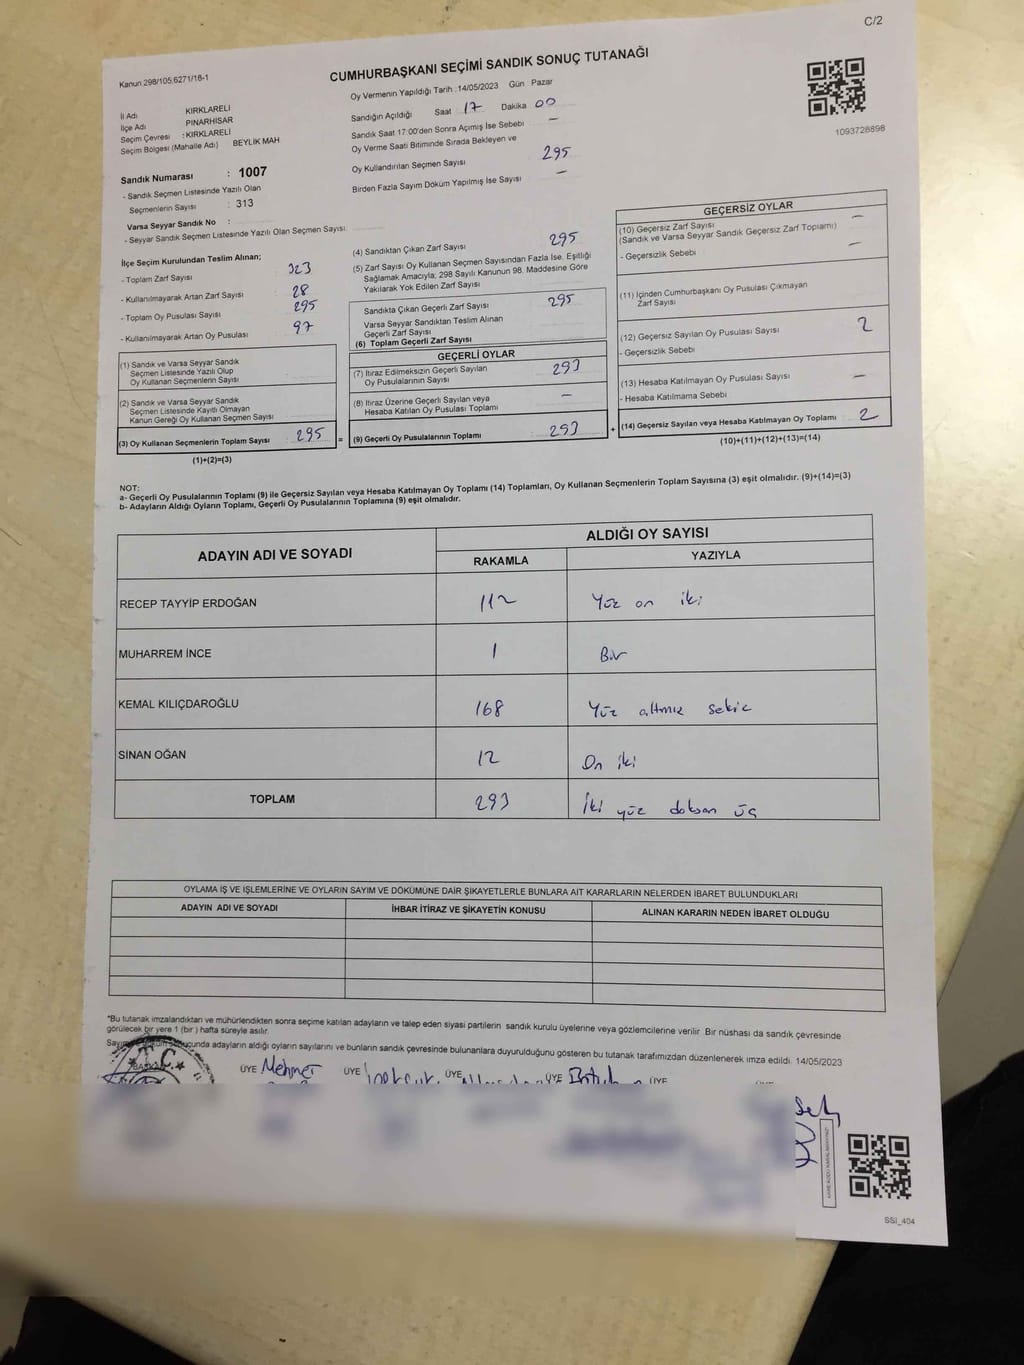 C/2
Kanun 298/105,6271/18-1
CUMHURBAŞKANI SEÇİMİ SANDIK SONUÇ TUTANAĞI
İl Adı KIRKLARELİ
İlçe Adı PINARHİSAR
Seçim Çevresi : KIRKLARELİ
Seçim Bölgesi (Mahalle Adı) BEYLİK MAH
Sandık Numarası : 1007
- Sandık Seçmen Listesinde Yazılı Olan
Seçmenlerin Sayısı : 313
Varsa Seyyar Sandık No :
- Seyyar Sandık Seçmen Listesinde Yazılı Olan Seçmen Sayısı:
Oy Vermenin Yapıldığı Tarih :14/05/2023 Gün Pazar
Sandığın Açıldığı Saat 17 Dakika 00
Sandık Saat 17:00'den Sonra Açılmış İse Sebebi —
Oy Verme Saati Bitiminde Sırada Bekleyen ve
Oy Kullandırılan Seçmen Sayısı 295
Birden Fazla Sayım Döküm Yapılmış İse Sayısı —
1093728898
İlçe Seçim Kurulundan Teslim Alınan;
- Toplam Zarf Sayısı 323
- Kullanılmayarak Artan Zarf Sayısı 28
- Toplam Oy Pusulası Sayısı 295
- Kullanılmayarak Artan Oy Pusulası 97
(1) Sandık ve Varsa Seyyar Sandık
Seçmen Listesinde Yazılı Olup
Oy Kullanan Seçmenlerin Sayısı
(2) Sandık ve Varsa Seyyar Sandık
Seçmen Listesinde Kayıtlı Olmayan
Kanun Gereği Oy Kullanan Seçmen Sayısı
(3) Oy Kullanan Seçmenlerin Toplam Sayısı : 295 =
(1)+(2)=(3)
(4) Sandıktan Çıkan Zarf Sayısı 295
(5) Zarf Sayısı Oy Kullanan Seçmen Sayısından Fazla İse, Eşitliği
Sağlamak Amacıyla; 298 Sayılı Kanunun 98. Maddesine Göre
Yakılarak Yok Edilen Zarf Sayısı
Sandıkta Çıkan Geçerli Zarf Sayısı 295
Varsa Seyyar Sandıktan Teslim Alınan
Geçerli Zarf Sayısı
(6) Toplam Geçerli Zarf Sayısı
GEÇERLİ OYLAR
(7) İtiraz Edilmeksizin Geçerli Sayılan
Oy Pusulalarının Sayısı 293
(8) İtiraz Üzerine Geçerli Sayılan veya
Hesaba Katılan Oy Pusulası Toplamı —
(9) Geçerli Oy Pusulalarının Toplamı : 293 +
GEÇERSİZ OYLAR
(10) Geçersiz Zarf Sayısı —
(Sandık ve Varsa Seyyar Sandık Geçersiz Zarf Toplamı)
- Geçersizlik Sebebi —
(11) İçinden Cumhurbaşkanı Oy Pusulası Çıkmayan
Zarf Sayısı
(12) Geçersiz Sayılan Oy Pusulası Sayısı 2
- Geçersizlik Sebebi
(13) Hesaba Katılmayan Oy Pusulası Sayısı —
- Hesaba Katılmama Sebebi
(14) Geçersiz Sayılan veya Hesaba Katılmayan Oy Toplamı 2
(10)+(11)+(12)+(13)=(14)
NOT:
a- Geçerli Oy Pusulalarının Toplamı (9) ile Geçersiz Sayılan veya Hesaba Katılmayan Oy Toplamı (14) Toplamları, Oy Kullanan Seçmenlerin Toplam Sayısına (3) eşit olmalıdır. (9)+(14)=(3)
b- Adayların Aldığı Oyların Toplamı, Geçerli Oy Pusulalarının Toplamına (9) eşit olmalıdır.
ADAYIN ADI VE SOYADI ALDIĞI OY SAYISI
RAKAMLA YAZIYLA
RECEP TAYYİP ERDOĞAN 112 Yüz on iki
MUHARREM İNCE 1 Bir
KEMAL KILIÇDAROĞLU 168 Yüz altmış sekiz
SİNAN OĞAN 12 On iki
TOPLAM 293 İki yüz doksan üç
OYLAMA İŞ VE İŞLEMLERİNE VE OYLARIN SAYIM VE DÖKÜMÜNE DAİR ŞİKAYETLERLE BUNLARA AİT KARARLARIN NELERDEN İBARET BULUNDUKLARI
ADAYIN ADI VE SOYADI İHBAR İTİRAZ VE ŞİKAYETİN KONUSU ALINAN KARARIN NEDEN İBARET OLDUĞU
*Bu tutanak imzalandıktan ve mühürlendikten sonra seçime katılan adayların ve talep eden siyasi partilerin sandık kurulu üyelerine veya gözlemcilerine verilir. Bir nüshası da sandık çevresinde
görülecek bir yere 1 (bir ) hafta süreyle asılır.
adayların aldığı oyların sayılarını ve bunların sandık çevresinde bulunanlara duyurulduğunu gösteren bu tutanak tarafımızdan düzenlenerek imza edildi. 14/05/2023
T.C.
ÜYE Mehmet ÜYE ÜYE ÜYE ÜYE
SSİ_404